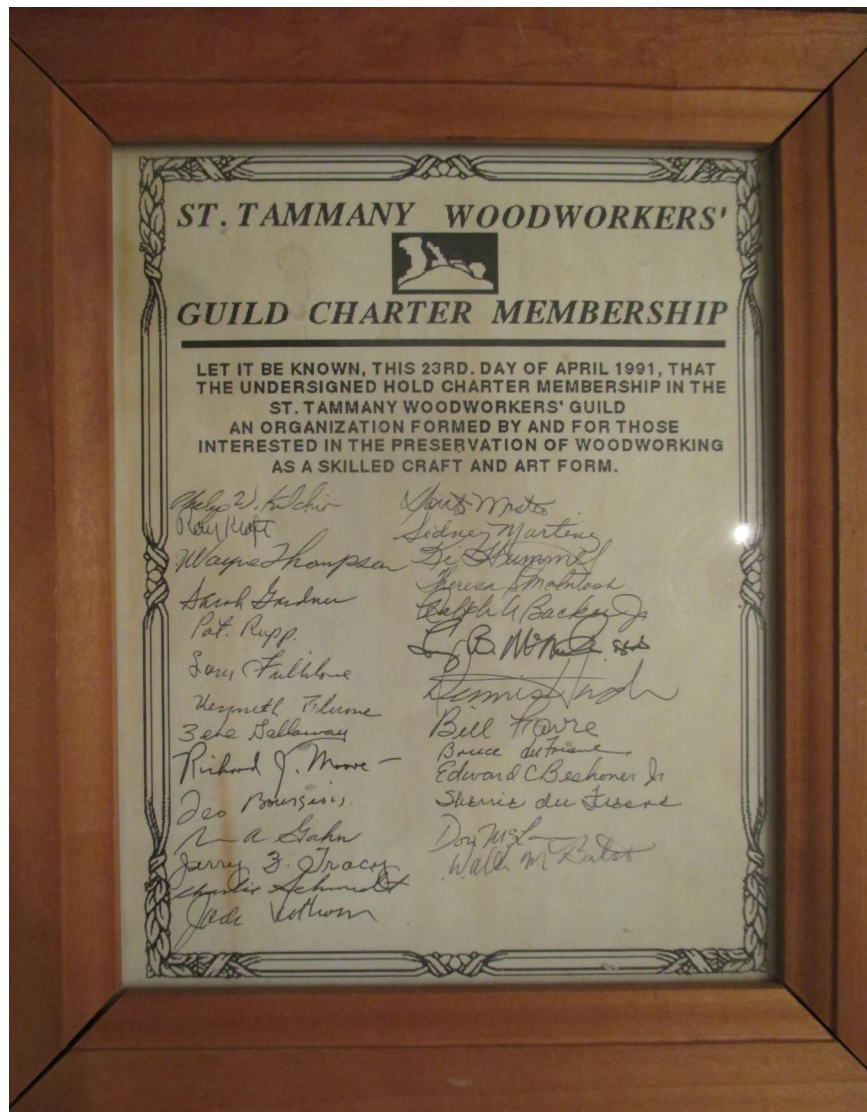 ST. TAMMANY WOODWORKERS'
GUILD CHARTER MEMBERSHIP
LET IT BE KNOWN, THIS 23RD. DAY OF APRIL 1991, THAT
THE UNDERSIGNED HOLD CHARTER MEMBERSHIP IN THE
ST. TAMMANY WOODWORKERS' GUILD
AN ORGANIZATION FORMED BY AND FOR THOSE
INTERESTED IN THE PRESERVATION OF WOODWORKING
AS A SKILLED CRAFT AND ART FORM.
W.
Ray Kraft
Wayne Thompson
Sarah Gardner
Pat. Rupp.
Sam
Kenneth
Gallaway
Richard J. Moore
Bourgeois
A Gahn
Jerry Z. Tracy
Charlie Schmidt
Jack
Sidney
Hummel
Theresa
Ralph A Backer Jr
B.
Dennis
Bill Favre
Bruce
Edward C Beshoner Jr
Sherrie du
Don
M